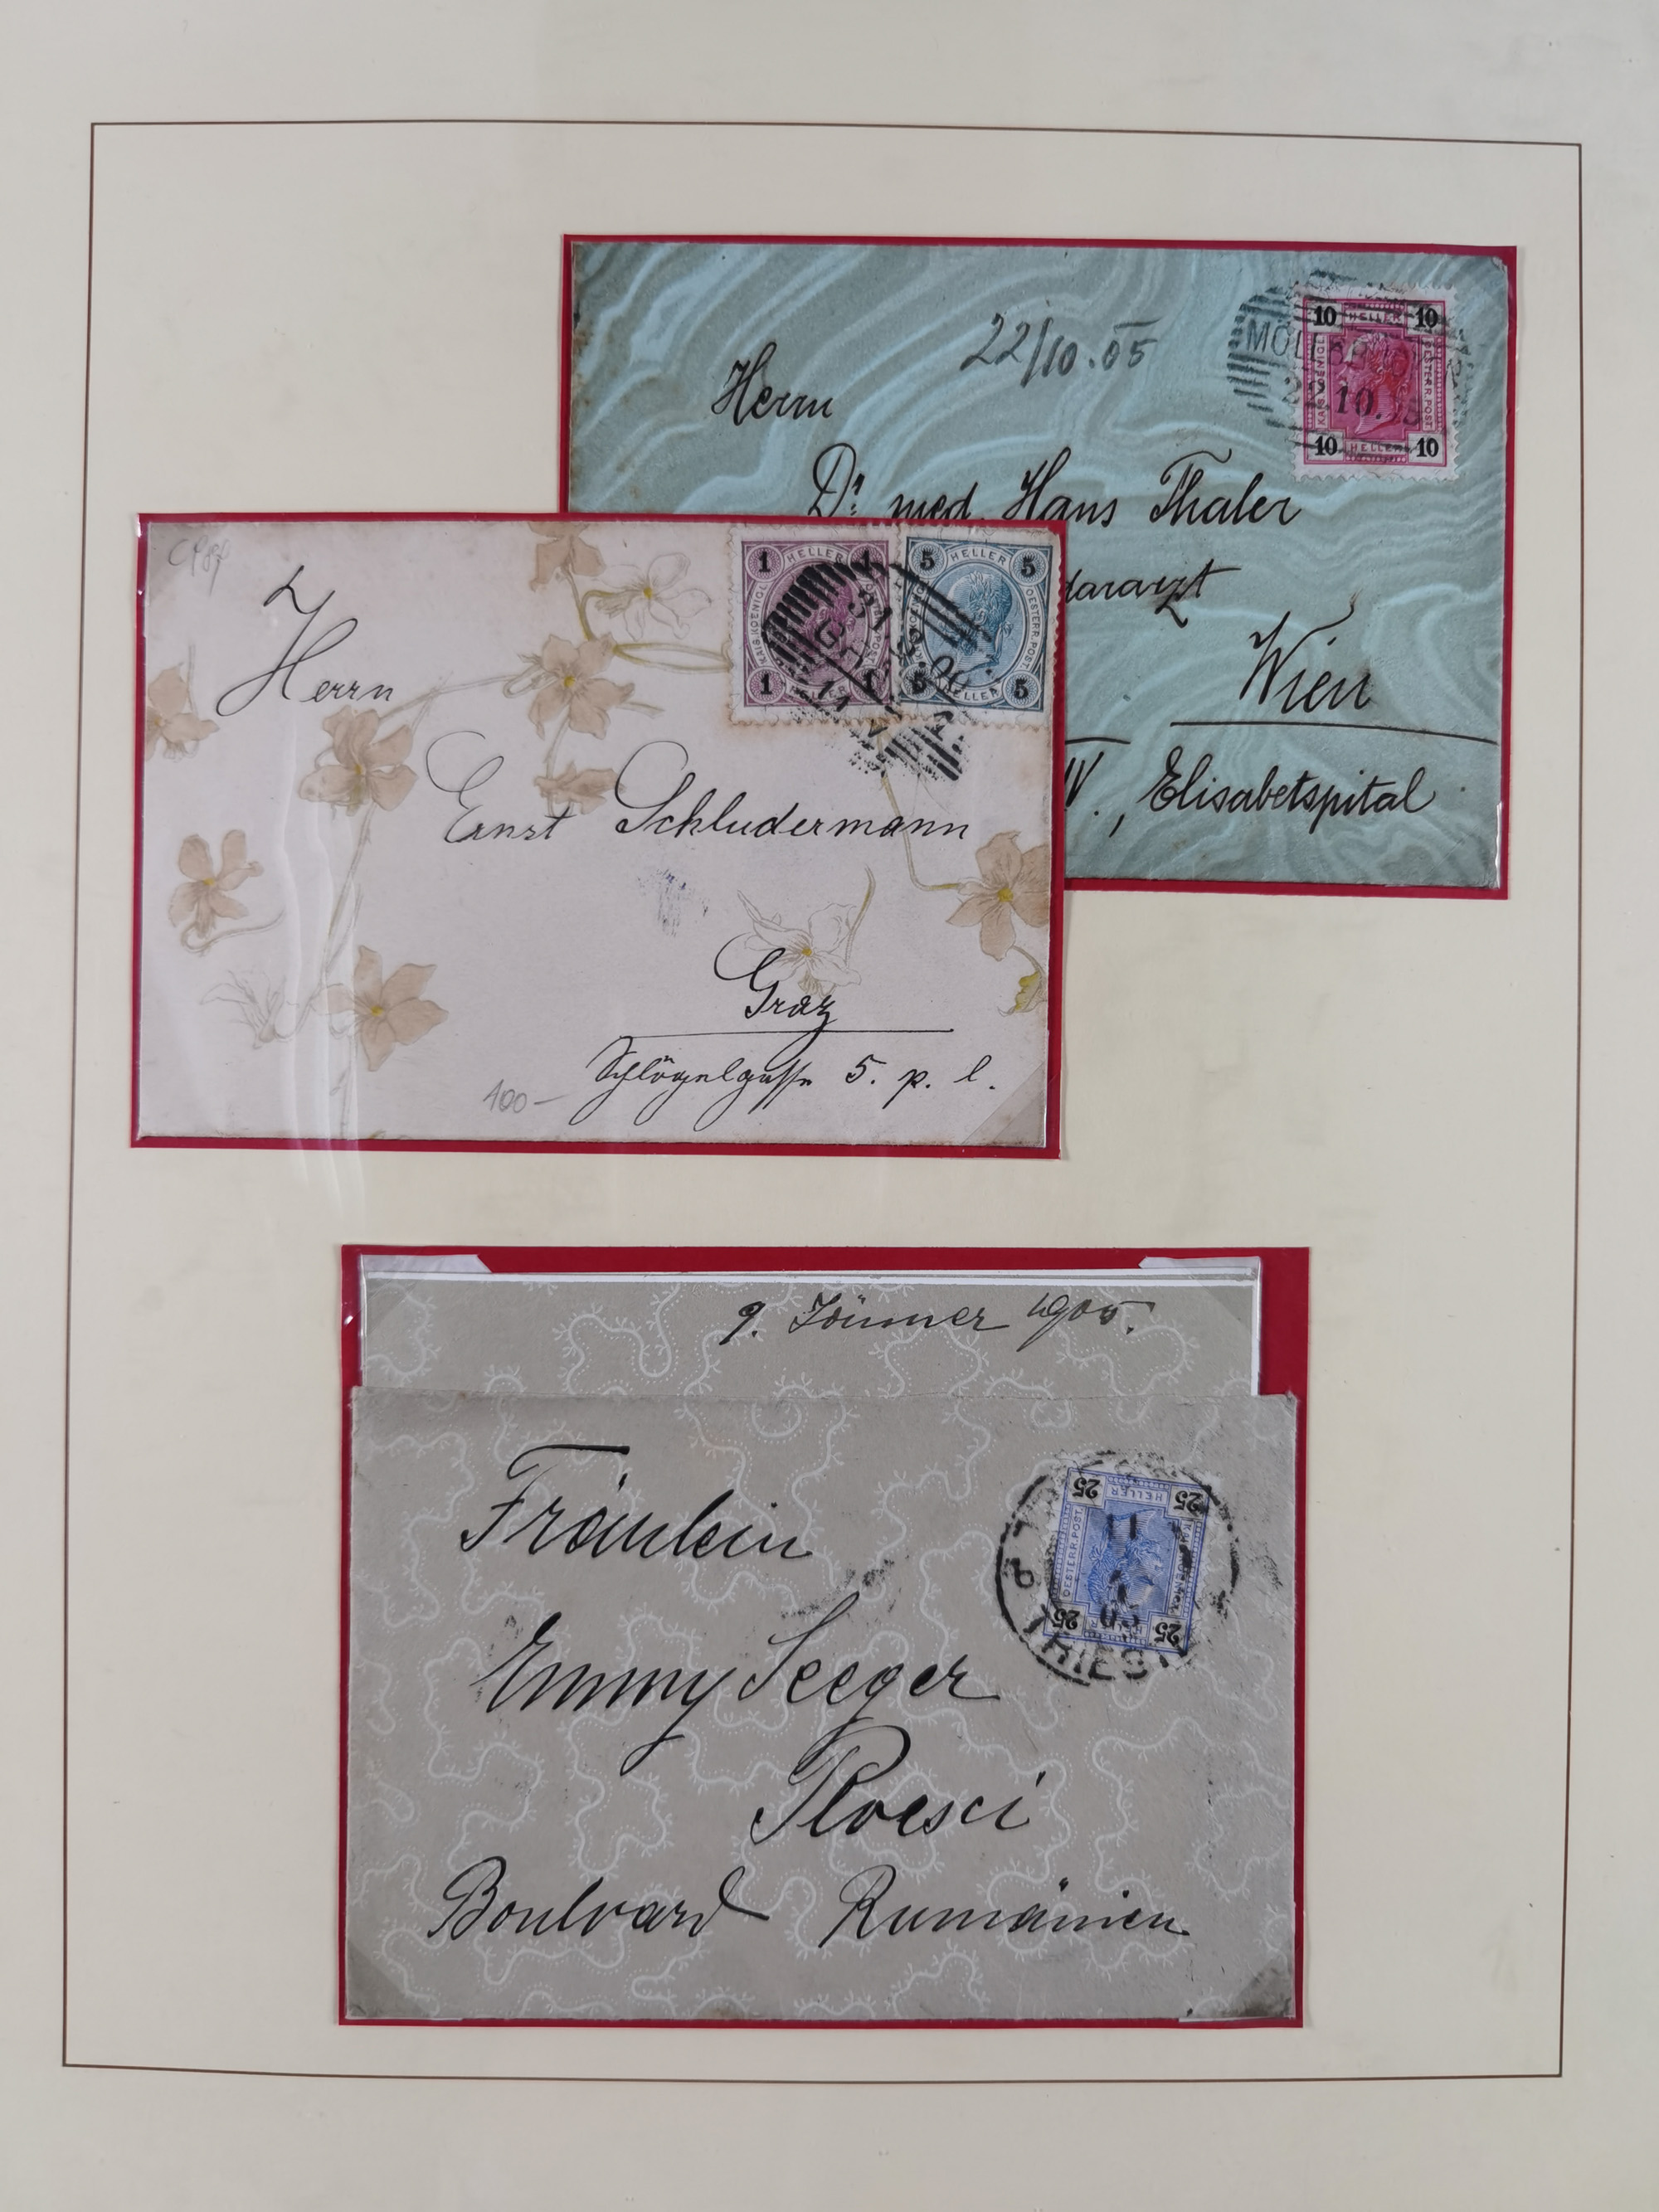 22/10.05
Herrn
Dr. med. Hans Thaler
dararzt
Wien
IV., Elisabetspital
10 HELLER 10
KAIS. KOENIGL.
OESTERR. POST
22 10. 05
10 HELLER 10
Herrn
Ernst Schludermann
Graz
Schlögelgasse 5. p. l.
100-
1 HELLER 1
KAIS. KOENIGL.
POST
1 HELLER 1
5 HELLER 5
OESTERR. POST
5 HELLER 5
31 8 00
9. Jänner 1905.
Fräulein
Emmy Seeger
Ploesci
Boulvard Rumänien
25 HELLER 25
OESTERR. POST
25 25
TRIEST